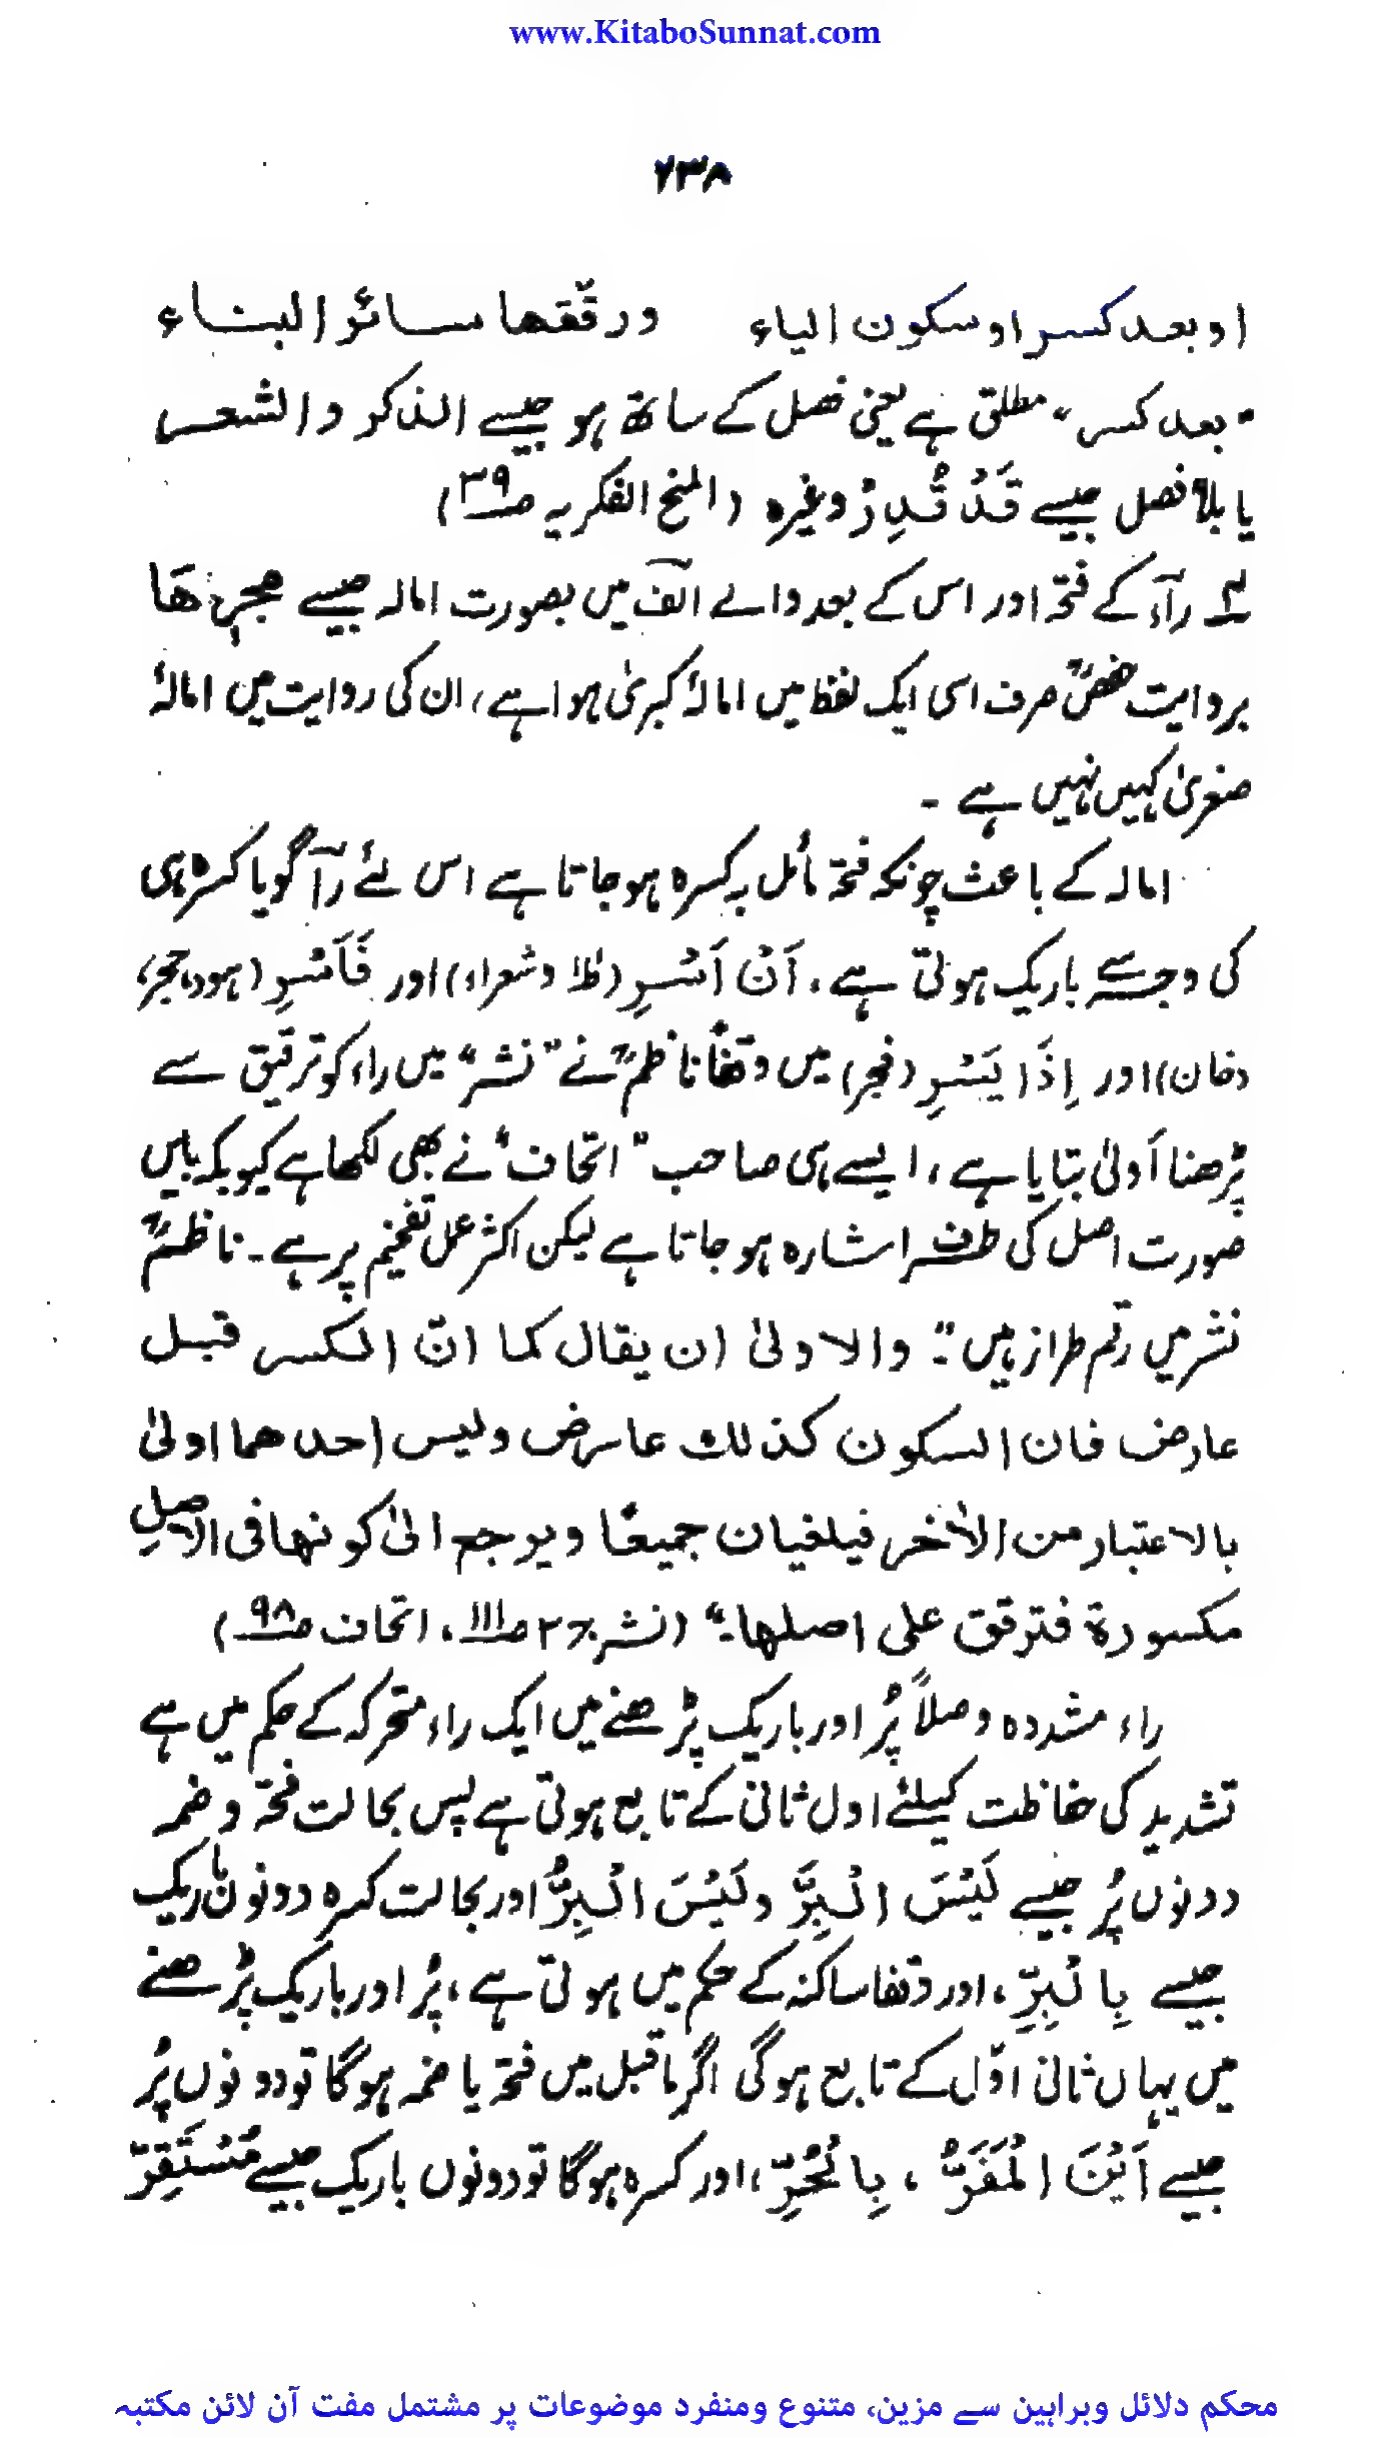 www.KitaboSunnat.com
۲۳۸
او بعد کسر او سکون الیاء ورقّقھا سائر البناء
"بعد کسر" مطلق ہے یعنی فصل کے ساتھ ہو جیسے الذکر والشعر
یا بلا فصل جیسے قَدْ قُدِرْ وغیرہ (المنح الفکریہ صـ۳۹)
۳ رآء کے فتحہ اور اس کے بعد والے الف میں بصورت امالہ جیسے مجرٖىھَا
بروایت حفصؒ صرف اسی ایک لفظ میں امالۂ کبریٰ ہوا ہے، ان کی روایت میں امالۂ
صغریٰ کہیں نہیں ہے ۔
امالہ کے باعث چونکہ فتحہ مائل بہ کسرہ ہو جاتا ہے اس لئے رآ گویا کسرہ ہی
کی وجہ سے باریک ہوتی ہے، اَنْ اَسْرِ (طٰہٰ و شعراء) اور فَاَسْرِ (ہود، حجر،
دخان) اور اِذَا یَسْرِ (فجر) میں وقفاً ناظمؒ نے "نشر" میں راء کو ترقیق سے
پڑھنا اَولیٰ بتایا ہے، ایسے ہی صاحب "اتحاف" نے بھی لکھا ہے کیونکہ بایں
صورت اصل کی طرف اشارہ ہو جاتا ہے لیکن اکثر عمل تفخیم پر ہے۔ ناظمؒ
نشر میں رقم طراز ہیں :" والاولیٰ ان یقال کما انّ الکسر قبل
عارض فان السکون کذلك عارض ولیس احدھما اولیٰ
بالاعتبار من الاٰخر فیلغیان جمیعًا ویرجع الیٰ کونھا فی الاصلِ
مکسورۃ فترقق علی اصلھا۔" (نشر جـ۲ صـ۱۱۱، اتحاف صـ۹۸)
راء مشددہ وصلاً پُر اور باریک پڑھنے میں ایک راء متحرکہ کے حکم میں ہے
تشدید کی حفاظت کیلئے اول ثانی کے تابع ہوتی ہے پس بحالت فتحہ و ضمہ
دونوں پُر جیسے لَیْسَ الْبِرَّ و لَیْسَ الْبِرُّ اور بحالت کسرہ دونوں باریک
جیسے بِالْبِرِّ، اور وقفا ساکنہ کے حکم میں ہوتی ہے، پُر اور باریک پڑھنے
میں یہاں ثانی اوّل کے تابع ہوگی اگر ماقبل میں فتحہ یا ضمہ ہوگا تو دونوں پُر
جیسے اَیْنَ الْمَفَرُّ ، بِالْحُرِّ، اور کسرہ ہوگا تو دونوں باریک جیسے مُسْتَقِرّ
محکم دلائل وبراہین سے مزین، متنوع ومنفرد موضوعات پر مشتمل مفت آن لائن مکتبہ